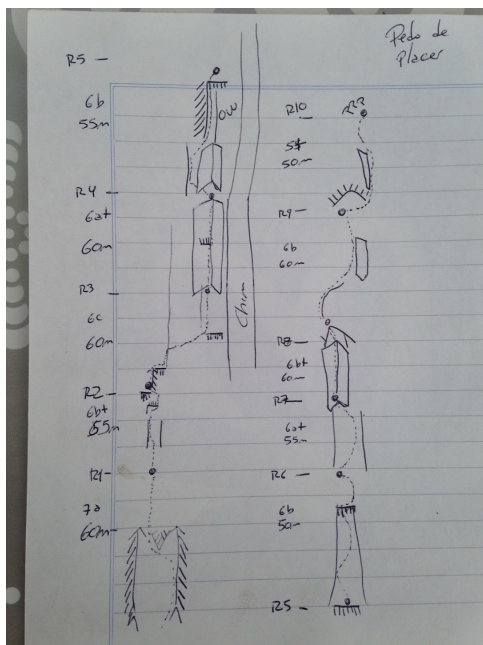 Pedo de
Placer
R5
6b
55m
OW
R4
6a+
60m
R3
6c
60m
Chim
R2
6b+
55m
R1
7a
60m
R10
5+
50m
R9
6b
60m
R8
6b+
60m
R7
6a+
55m
R6
6b
50m
R5